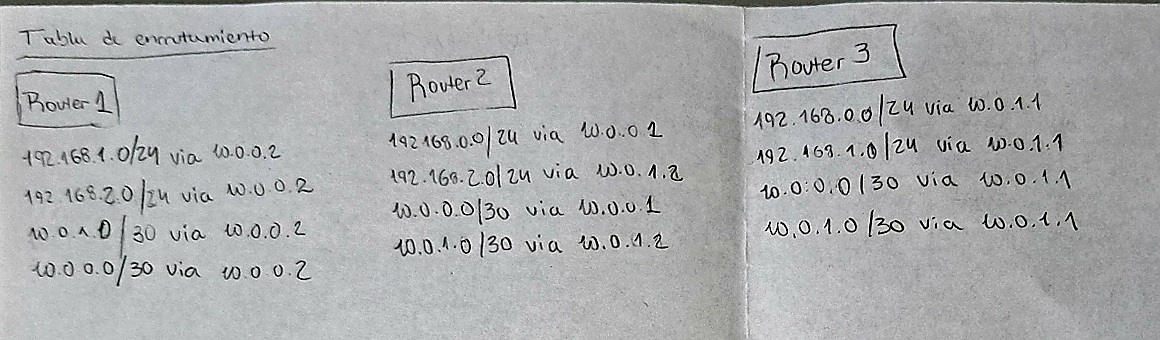 Tabla de enrutamiento
Router 1
192.168.1.0/24 via 10.0.0.2
192.168.2.0/24 via 10.0.0.2
10.0.1.0/30 via 10.0.0.2
10.0.0.0/30 via 10.0.0.2
Router 2
192.168.0.0/24 via 10.0.0.1
192.168.2.0/24 via 10.0.1.2
10.0.0.0/30 via 10.0.0.1
10.0.1.0/30 via 10.0.1.2
Router 3
192.168.0.0/24 via 10.0.1.1
192.168.1.0/24 via 10.0.1.1
10.0.0.0/30 via 10.0.1.1
10.0.1.0/30 via 10.0.1.1